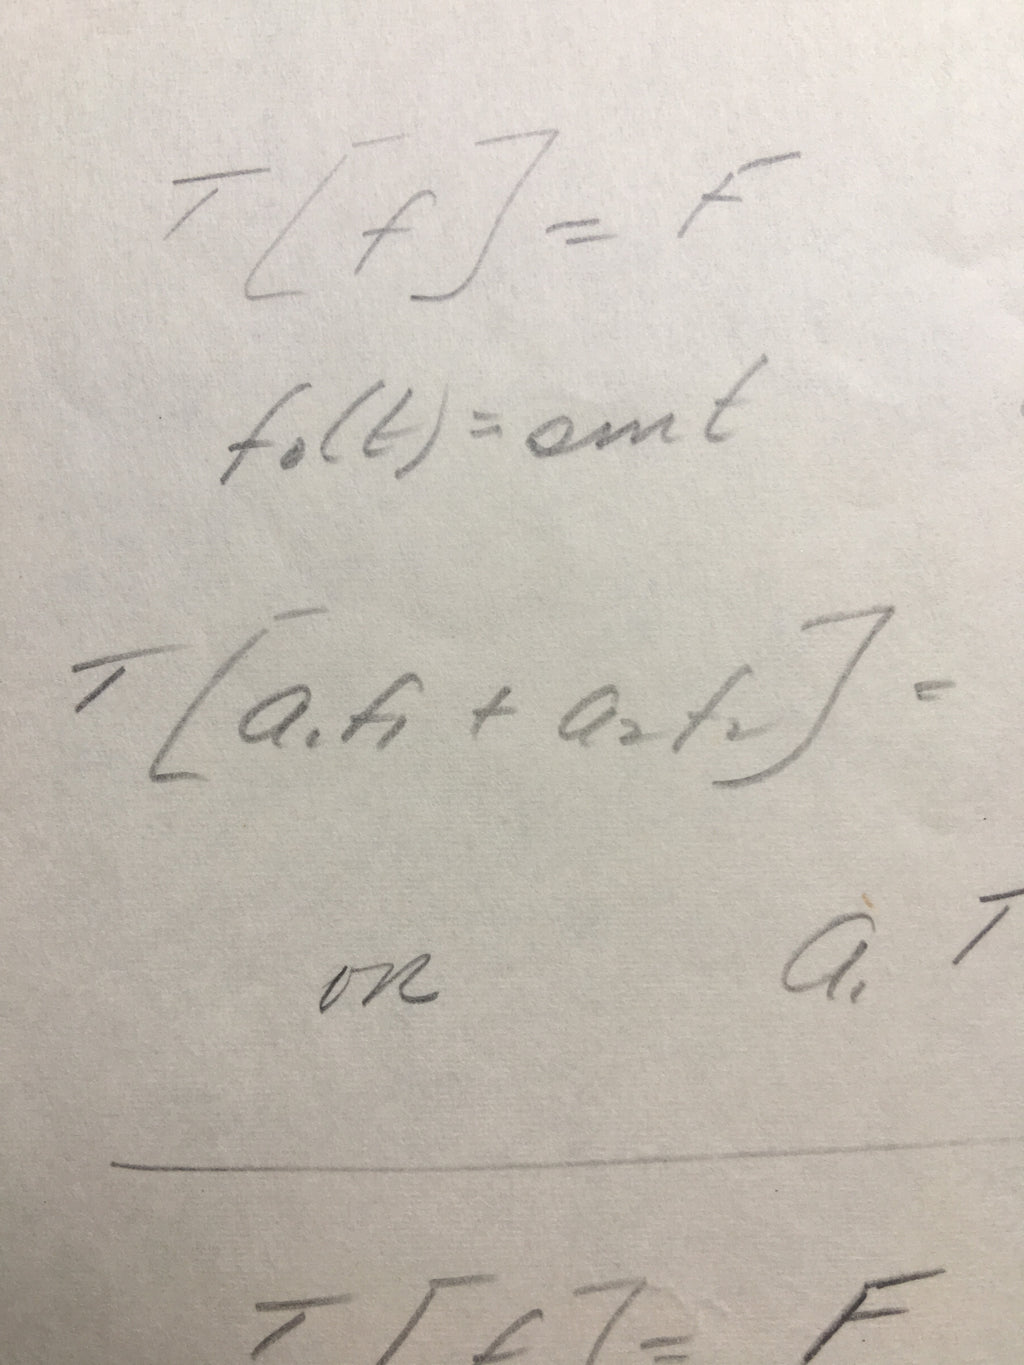 T[f] = F
f₀(t) = sin t
T[a₁f₁ + a₂f₂] =
or a₁ T
T[f] = F